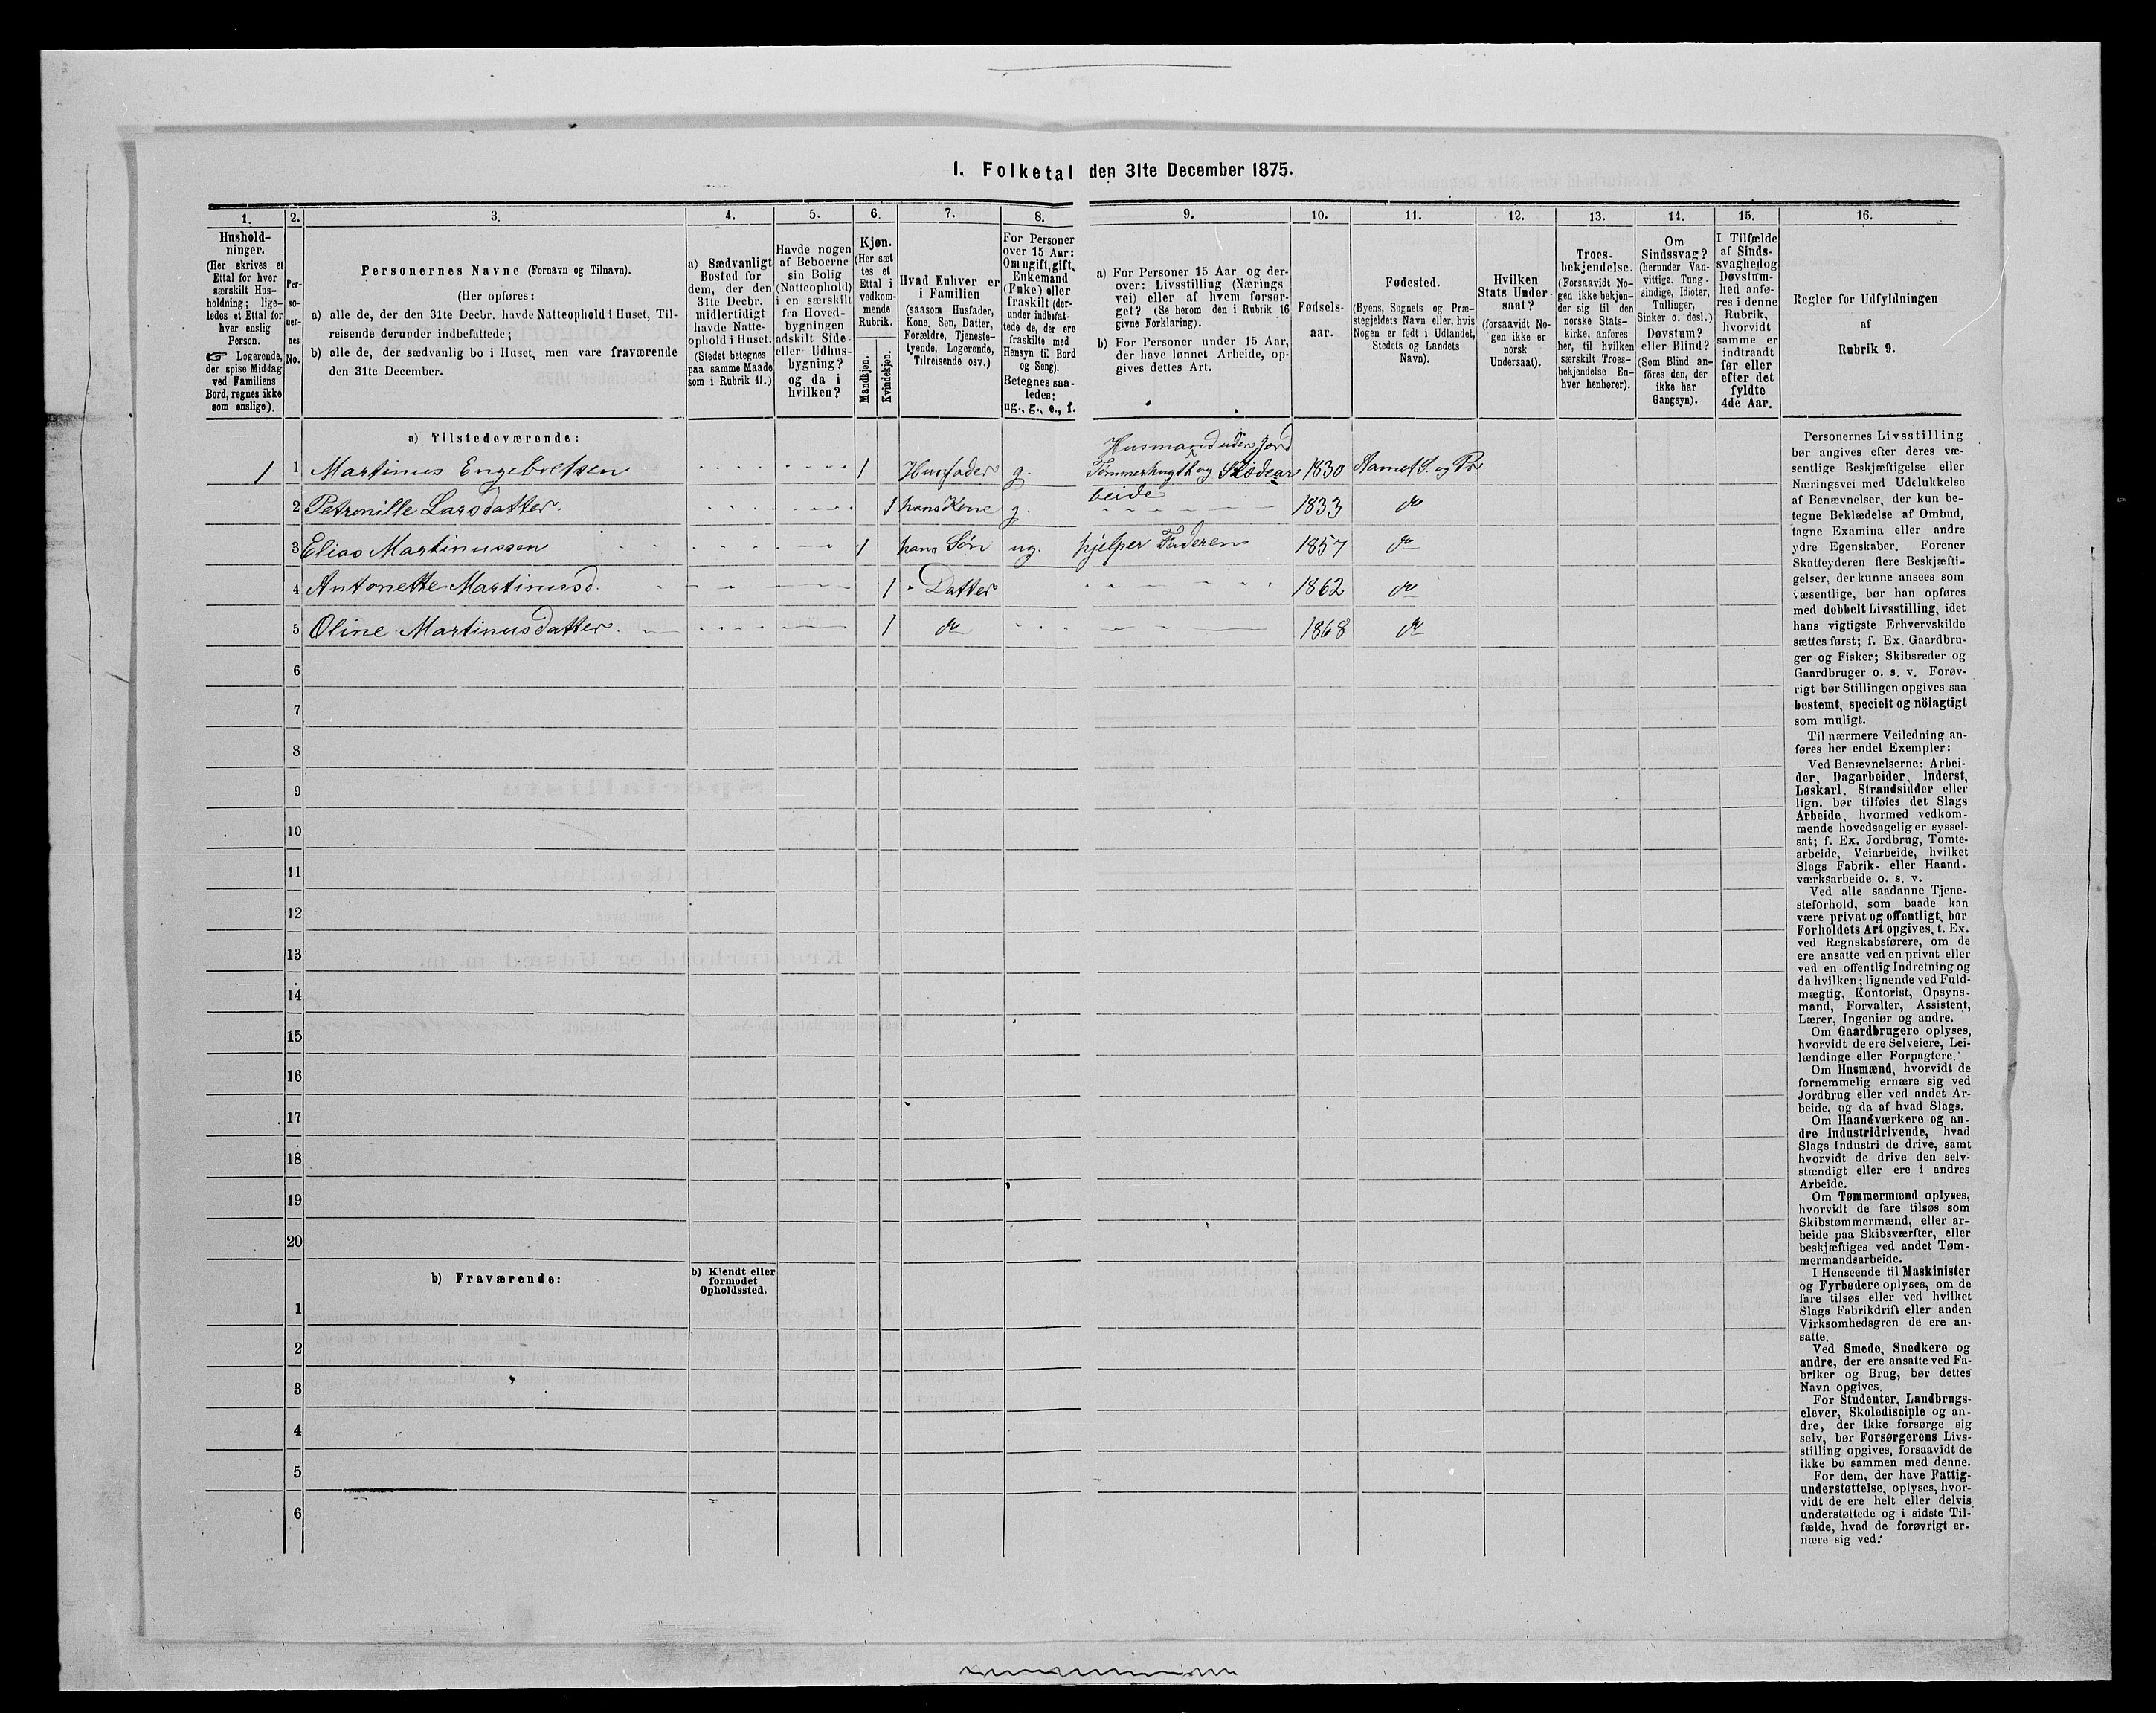 I. Folketal den 31te December 1875.
1. 2. 3. 4. 5. 6. 7. 8. 9. 10. 11. 12. 13. 14. 15. 16.
Hushold-
ninger.
(Her skrives et
Ettal for hver
særskilt Hus-
holdning; lige-
ledes et Ettal for
hver enslig
Person.
☞ Logerende,
der spise Middag
ved Familiens
Bord, regnes ikke
som enslige).
Per-
so-
ner-
nes
No.
Personernes Navne (Fornavn og Tilnavn).
(Her opføres:
a) alle de, der den 31te Decbr. havde Natteophold i Huset, Til-
reisende derunder indbefattede;
b) alle de, der sædvanlig bo i Huset, men vare fraværende
den 31te December.
a) Sædvanligt
Bosted for
dem, der den
31te Decbr.
midlertidigt
havde Natte-
ophold i Huset.
(Stedet betegnes
paa samme Maade
som i Rubrik 11.)
Havde nogen
af Beboerne
sin Bolig
(Natteophold)
i en særskilt
fra Hoved-
bygningen
adskilt Side-
eller Udhus-
bygning?
og da i
hvilken?
Kjøn.
(Her sæt-
tes et
Ettal i
vedkom-
mende
Rubrik.
Mandkjøn.
Kvindekjøn.
Hvad Enhver er
i Familien
(saasom Husfader,
Kone, Søn, Datter,
Forældre, Tjeneste-
tyende, Logerende,
Tilreisende osv.)
For Personer
over 15 Aar:
Om ugift, gift,
Enkemand
(Enke) eller
fraskilt (der-
under indbefat-
tede de, der ere
fraskilte med
Hensyn til Bord
og Seng).
Betegnes saa-
ledes:
ug., g., e., f.
a) For Personer 15 Aar og der-
over: Livsstilling (Nærings
vei) eller af hvem forsør-
get? (Se herom den i Rubrik 16
givne Forklaring).
b) For Personer under 15 Aar,
der have lønnet Arbeide, op-
gives dettes Art.
Fødsels-
aar.
Fødested.
(Byens, Sognets og Præ-
stegjeldets Navn eller, hvis
Nogen er født i Udlandet,
Stedets og Landets
Navn).
Hvilken
Stats Under-
saat?
(forsaavidt No-
gen ikke er
norsk
Undersaat).
Troes-
bekjendelse.
(Forsaavidt No-
gen ikke bekjen-
der sig til den
norske Stats-
kirke, anføres
her, til hvilken
særskilt Troes-
bekjendelse En-
hver henhører).
Om
Sindssvag?
(herunder Van-
vittige, Tung-
sindige, Idioter,
Tullinger,
Sinker o. desl.)
Døvstum?
eller Blind?
(Som Blind an-
føres den, der
ikke har
Gangsyn).
I Tilfælde
af Sinds-
svaghed og
Døvstum-
hed anfø-
res i denne
Rubrik,
hvorvidt
samme er
indtraadt
før eller
efter det
fyldte
4de Aar.
Regler for Udfyldningen
af
Rubrik 9.
a) Tilstedeværende:
Husmand uden Jord
1 1 Martinus Engebretsen 1 Husfader g. Tømmerhugst og Slædear 1830 Aamot S. og Pr
beide
2 Petronille Larsdatter. 1 hans Kone g. 1833 do
3 Elias Martinussen 1 hans Søn ug. hjelper Faderen 1857 do
4 Antonette Martinusd. 1 " Datter 1862 do
5 Oline Martinusdatter. 1 do 1868 do
6
7
8
9
10
11
12
13
14
15
16
17
18
19
20
b) Fraværende:
b) Kjendt eller
formodet
Opholdssted.
1
2
3
4
5
6
Personernes Livsstilling
bør angives efter deres væ-
sentlige Beskjæftigelse eller
Næringsvei med Udelukkelse
af Benævnelser, der kun be-
tegne Beklædelse af Ombud,
tagne Examina eller andre
ydre Egenskaber. Forener
Skatteyderen flere Beskjæfti-
gelser, der kunne ansees som
væsentlige, bør han opføres
med dobbelt Livsstilling, idet
hans vigtigste Erhvervskilde
sættes først; f. Ex. Gaardbru-
ger og Fisker; Skibsreder og
Gaardbruger o. s. v. Forøv-
rigt bør Stillingen opgives saa
bestemt, specielt og nöiagtigt
som muligt.
Til nærmere Veiledning an-
føres her endel Exempler:
Ved Benævnelserne: Arbei-
der, Dagarbeider, Inderst,
Løskarl, Strandsidder eller
lign. bør tilføies det Slags
Arbeide, hvormed vedkom-
mende hovedsagelig er syssel-
sat; f. Ex. Jordbrug, Tomte-
arbeide, Veiarbeide, hvilket
Slags Fabrik- eller Haand-
værksarbeide o. s. v.
Ved alle saadanne Tjene-
steforhold, som baade kan
være privat og offentligt, bør
Forholdets Art opgives, t. Ex.
ved Regnskabsførere, om de
ere ansatte ved en privat eller
ved en offentlig Indretning og
da hvilken; lignende ved Fuld-
mægtig, Kontorist, Opsyns-
mand, Forvalter, Assistent,
Lærer, Ingeniør og andre.
Om Gaardbrugere oplyses,
hvorvidt de ere Selveiere, Lei-
lændinge eller Forpagtere.
Om Husmænd, hvorvidt de
fornemmelig ernære sig ved
Jordbrug eller ved andet Ar-
beide, og da af hvad Slags.
Om Haandværkere og an-
dre Industridrivende, hvad
Slags Industri de drive, samt
hvorvidt de drive den selv-
stændigt eller ere i andres
Arbeide.
Om Tømmermænd oplyses,
hvorvidt de fare tilsøs som
Skibstømmermænd, eller ar-
beide paa Skibsværfter, eller
beskjæftiges ved andet Tøm-
mermandsarbeide.
I Henseende til Maskinister
og Fyrbødere oplyses, om de
fare tilsøs eller ved hvilket
Slags Fabrikdrift eller anden
Virksomhedsgren de ere an-
satte.
Ved Smede, Snedkere og
andre, der ere ansatte ved Fa-
briker og Brug, bør dettes
Navn opgives.
For Studenter, Landbrugs-
elever, Skoledisciple og an-
dre, der ikke forsørge sig
selv, bør Forsørgerens Livs-
stilling opgives, forsaavidt de
ikke bo sammen med denne.
For dem, der have Fattig-
understøttelse, oplyses, hvor-
vidt de ere helt eller delvis
understøttede og i sidste Til-
fælde, hvad de forøvrigt er-
nære sig ved.